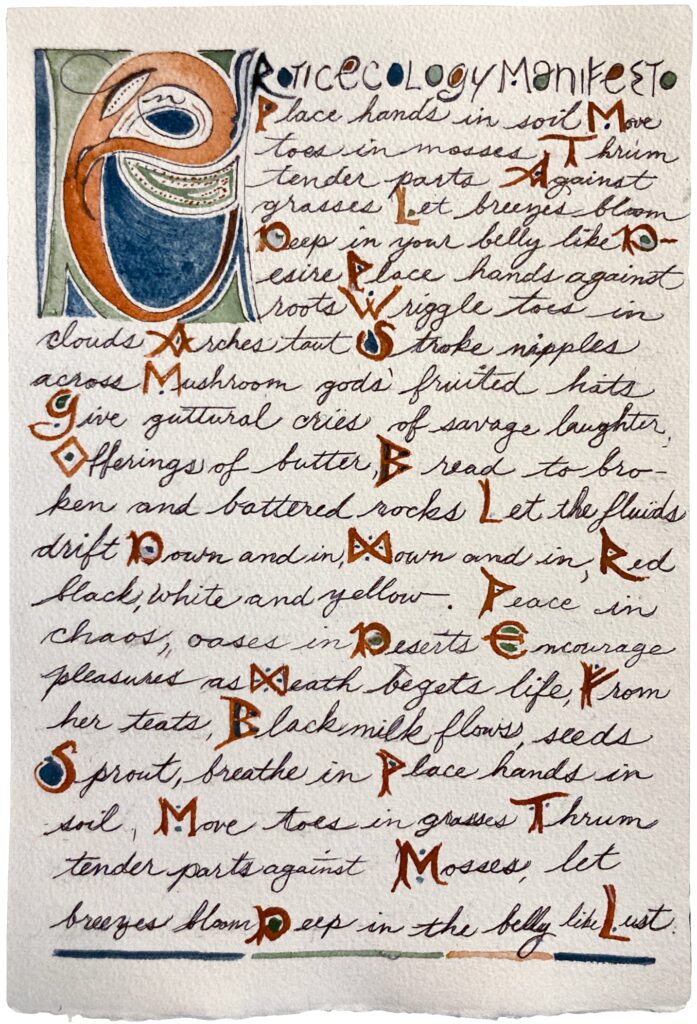 EroticecologyManifesto
Place hands in soil Move
toes in mosses Thrum
tender parts Against
grasses Let breezes bloom
Deep in your belly like D-
esire Place hands against
roots Wriggle toes in
clouds Arches taut Stroke nipples
across Mushroom gods' fruited hats
give guttural cries of savage laughter,
Offerings of butter, Bread to bro-
ken and battered rocks Let the fluids
drift Down and in, Down and in, Red
black, white and yellow. Peace in
chaos, oases in Deserts Encourage
pleasures as Death begets life, From
her teats, Black milk flows, seeds
Sprout, breathe in Place hands in
soil, Move toes in grasses Thrum
tender parts against Mosses, let
breezes bloom Deep in the belly like Lust.